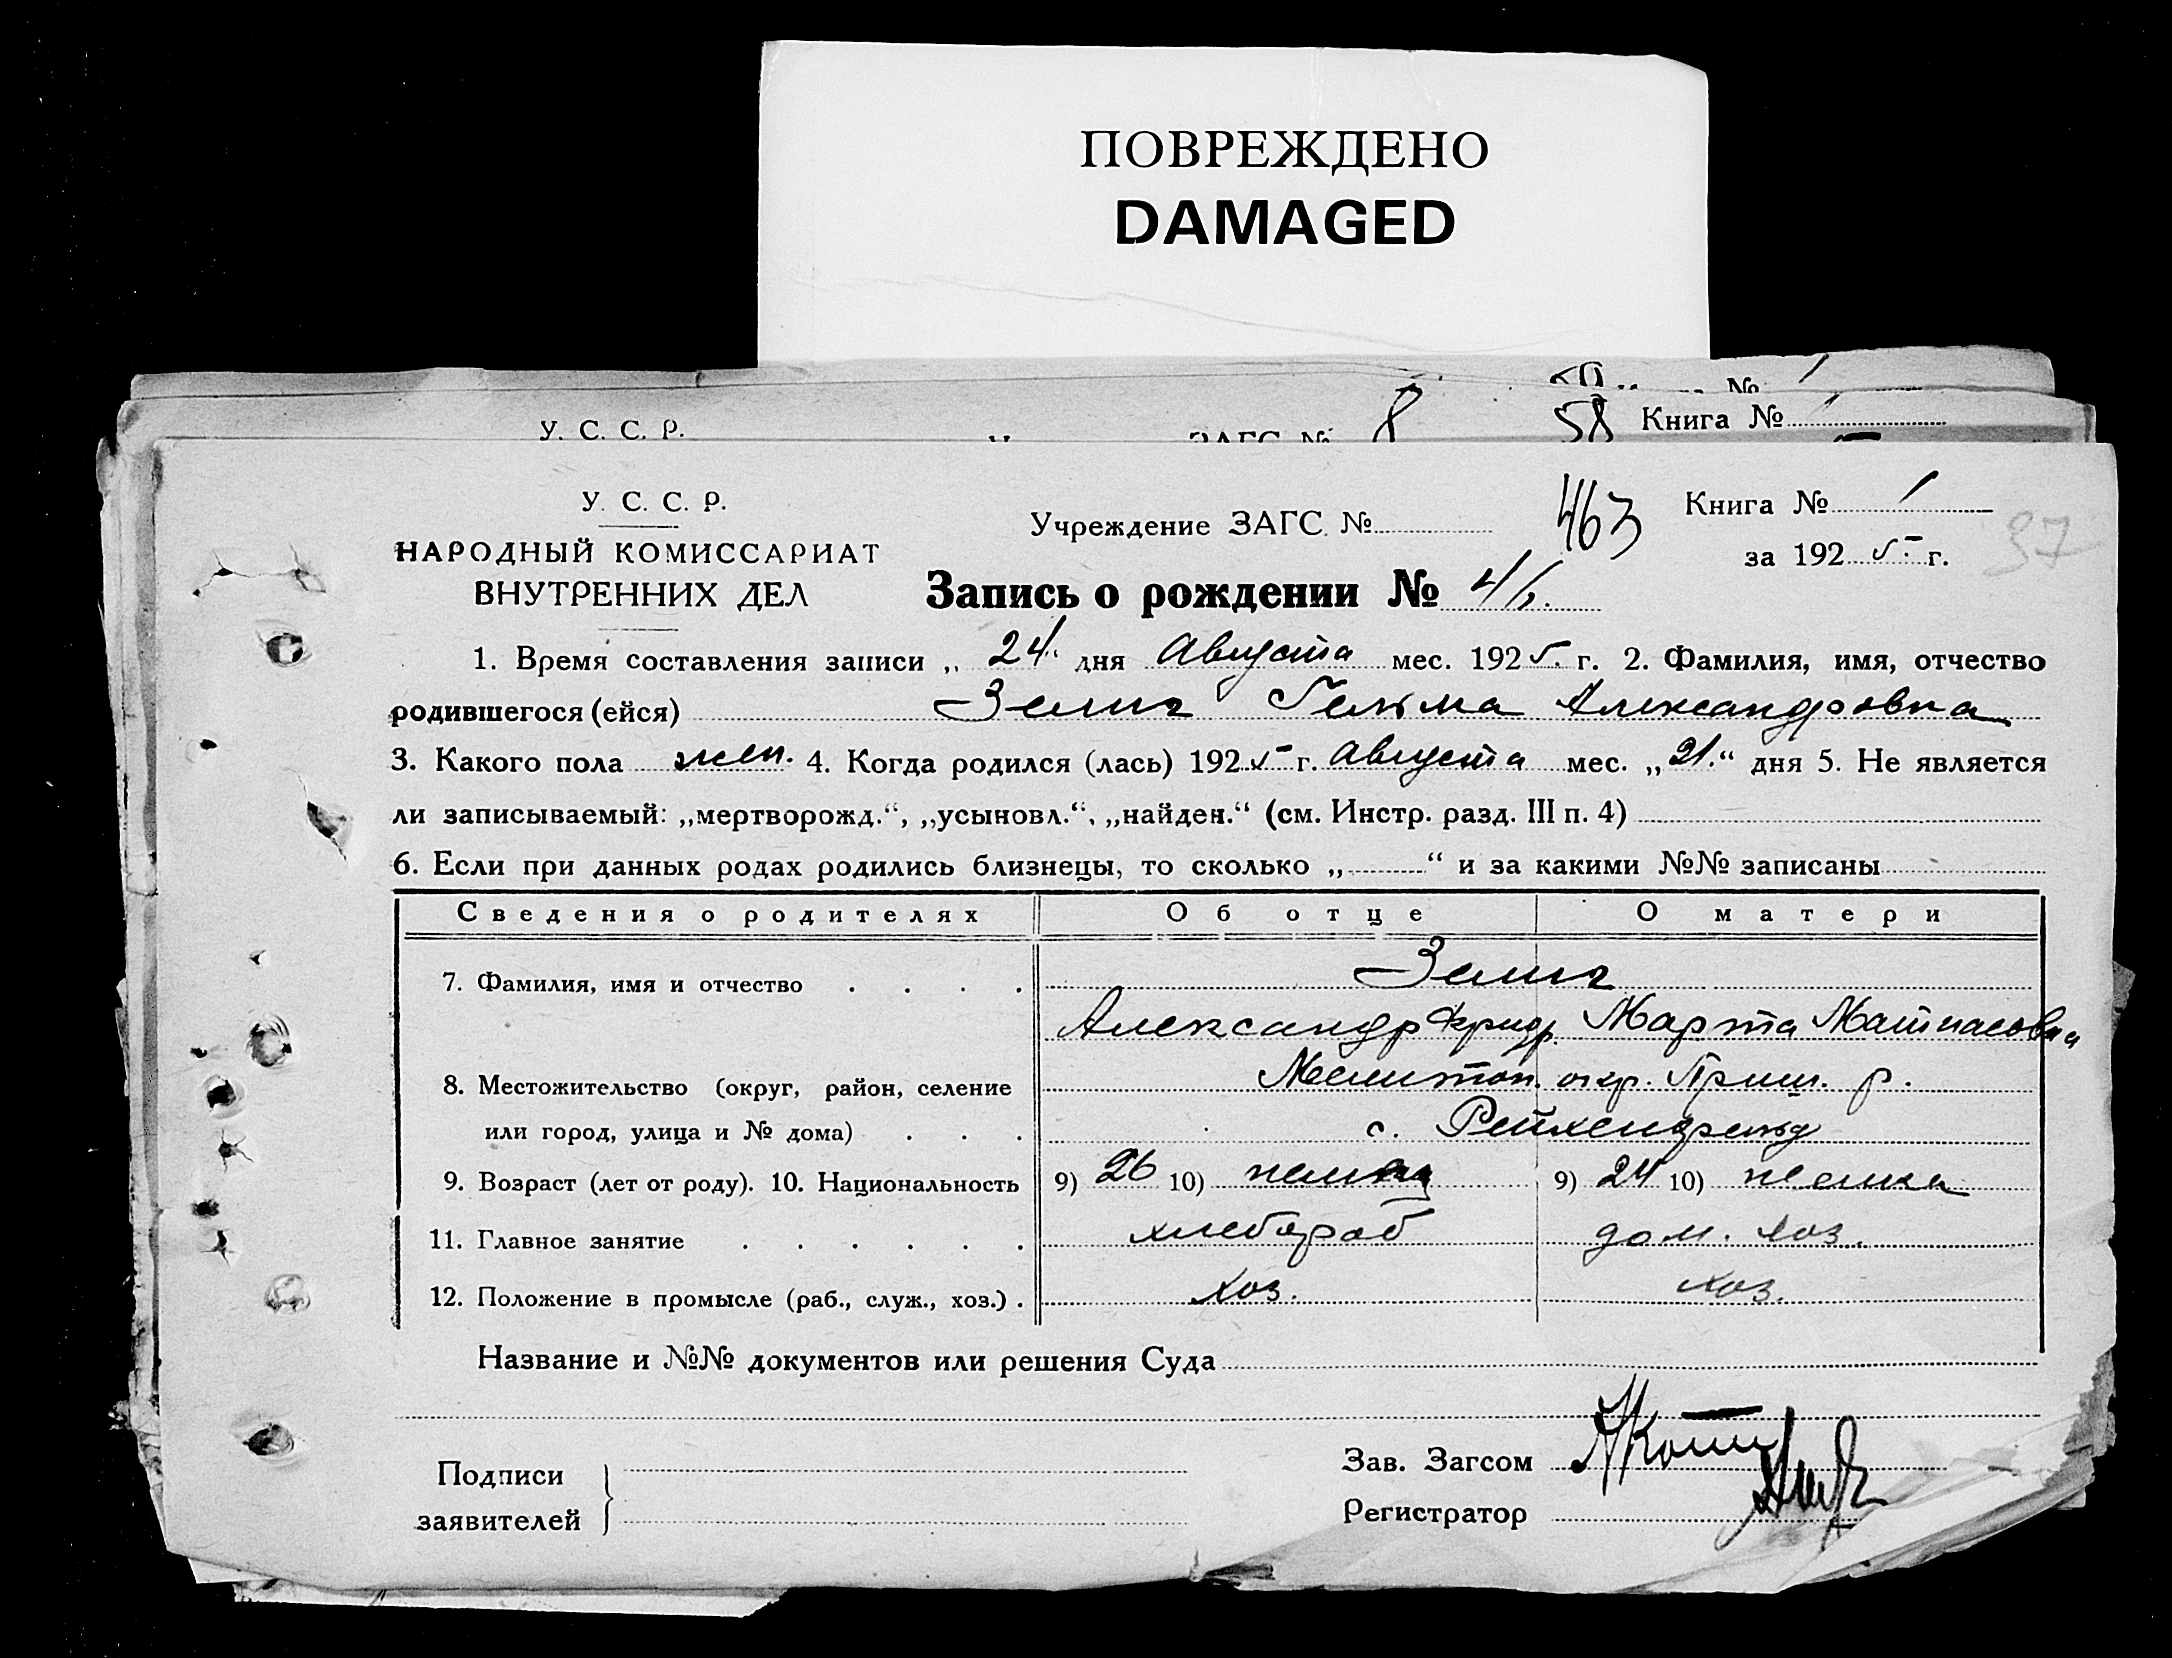 ПОВРЕЖДЕНО
DAMAGED
1
№
58 Книга № 1
У. С. С. Р. ЗАГС № 8
У. С. С. Р.
НАРОДНЫЙ КОМИССАРИАТ
ВНУТРЕННИХ ДЕЛ
Учреждение ЗАГС. №
463
Книга № 1
за 1925 г.
37
Запись о рождении №
1. Время составления записи „24“ дня Августа мес. 1925. г. 2. Фамилия, имя, отчество
родившегося (ейся) Зелиг Гельма Александровна
3. Какого пола жен. 4. Когда родился (лась) 1925 г. Августа мес. „21.“ дня 5. Не является
ли записываемый: „мертворожд.“, „усыновл.“, „найден.“ (см. Инстр. разд. III п. 4)
6. Если при данных родах родились близнецы, то сколько „ “ и за какими №№ записаны
Сведения о родителях Об отце О матери
7. Фамилия, имя и отчество . . . . Зелиг
Александр Фридр. Марта Матиасовна
8. Местожительство (округ, район, селение Мелитоп. окр. Приш. р.
или город, улица и № дома) . . . с. Рейхенфельд
9. Возраст (лет от роду). 10. Национальность 9) 26 10) немец 9) 24 10) немка
11. Главное занятие . . . . . . хлебороб дом. хоз.
12. Положение в промысле (раб., служ., хоз.) . хоз. хоз.
Название и №№ документов или решения Суда
Подписи
заявителей
Зав. Загсом
Регистратор